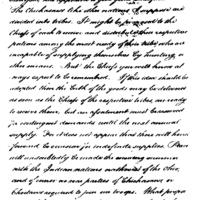 The Chickasaws & the other nations I suppose are
divided into tribes. It might be good to the
Chiefs of each to receive and distribute their respective
portions among the most needy of their tribes who are
incapable of supplying themselves by hunting or
other means. But the Chiefs you will know al-
ways expect to be remembered. If this idea should be
adopted then the bulk of the goods may be delivered
as soon as the Chiefs of the respective tribes are ready
to receive them, but an apartment must be reserved
for contingent demands until the next annual
supply. I do not suppose that there will have
found be occasion for indefinite supplies. Peace
will undoubtedly be made the ensuing summer
with the Indian nations northwest of the Ohio,
and of course no more parties of Chickasaws or
Choctaws required to join our troops. What propo